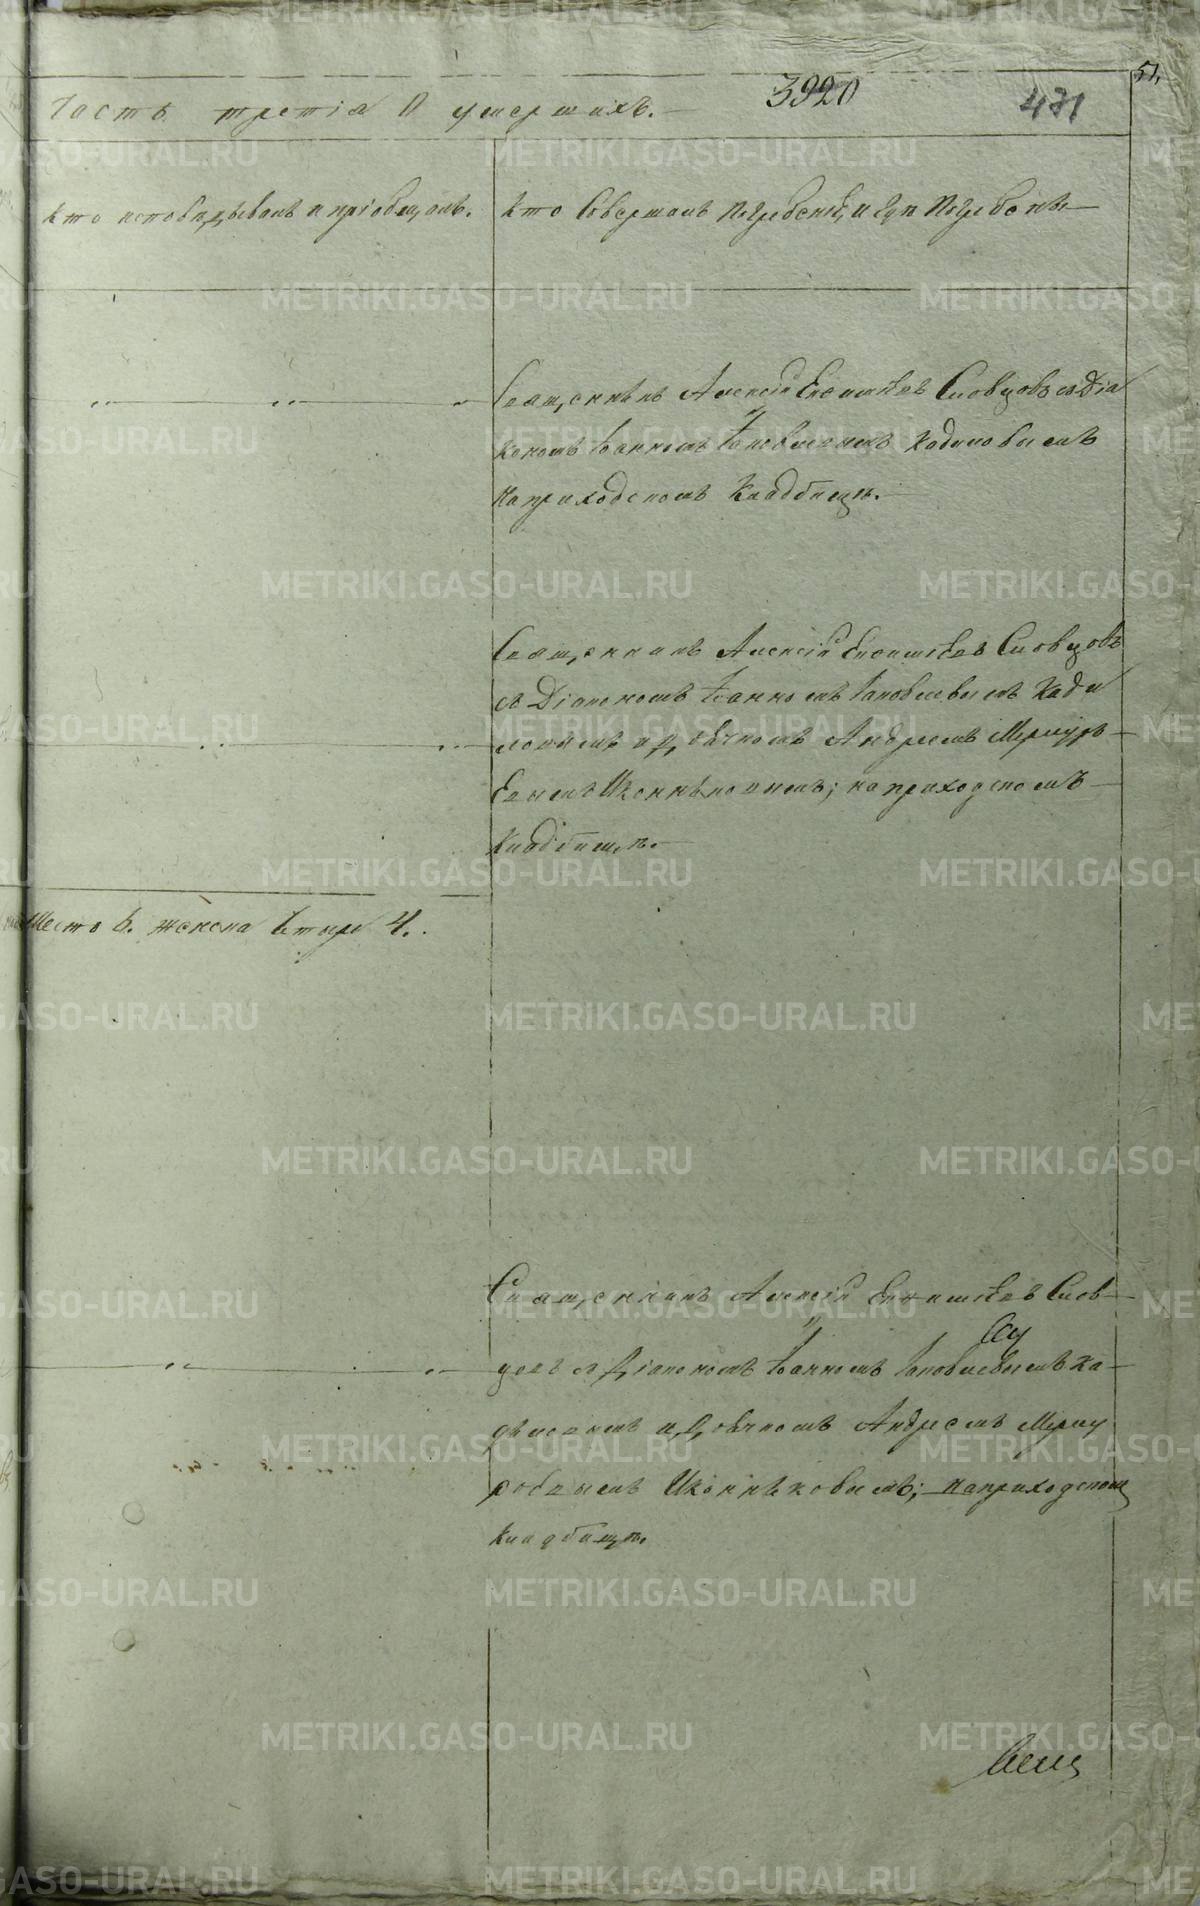 51.
Часть третія О умершихъ.
3920
471
Кто исповѣдывалъ и пріобщалъ.
Кто Совершалъ Погребеніе, и гдѣ Погребенъ
Священникъ Алексѣй Словцовъ съ Діа
кономъ Іоанномъ Іаковлевымъ Кадиловымъ
На приходскомъ Кладбищѣ.
Священникъ Алексѣй Словцовъ
съ Діакономъ Іоанномъ Іаковлевымъ Кади
ловымъ и дьячкомъ Андреемъ Меркурь
евымъ Иконниковымъ; на приходскомъ
Кладбищѣ.
6. женска 4.
Священникъ Алексѣй Слов
цовъ съ Діакономъ Іоанномъ Іаковлевымъ Ка
диловымъ и дьячкомъ Андреемъ Мерку
Иконниковымъ; на приходском
Кладбищѣ.
METRIKI.GASO-URAL.RU